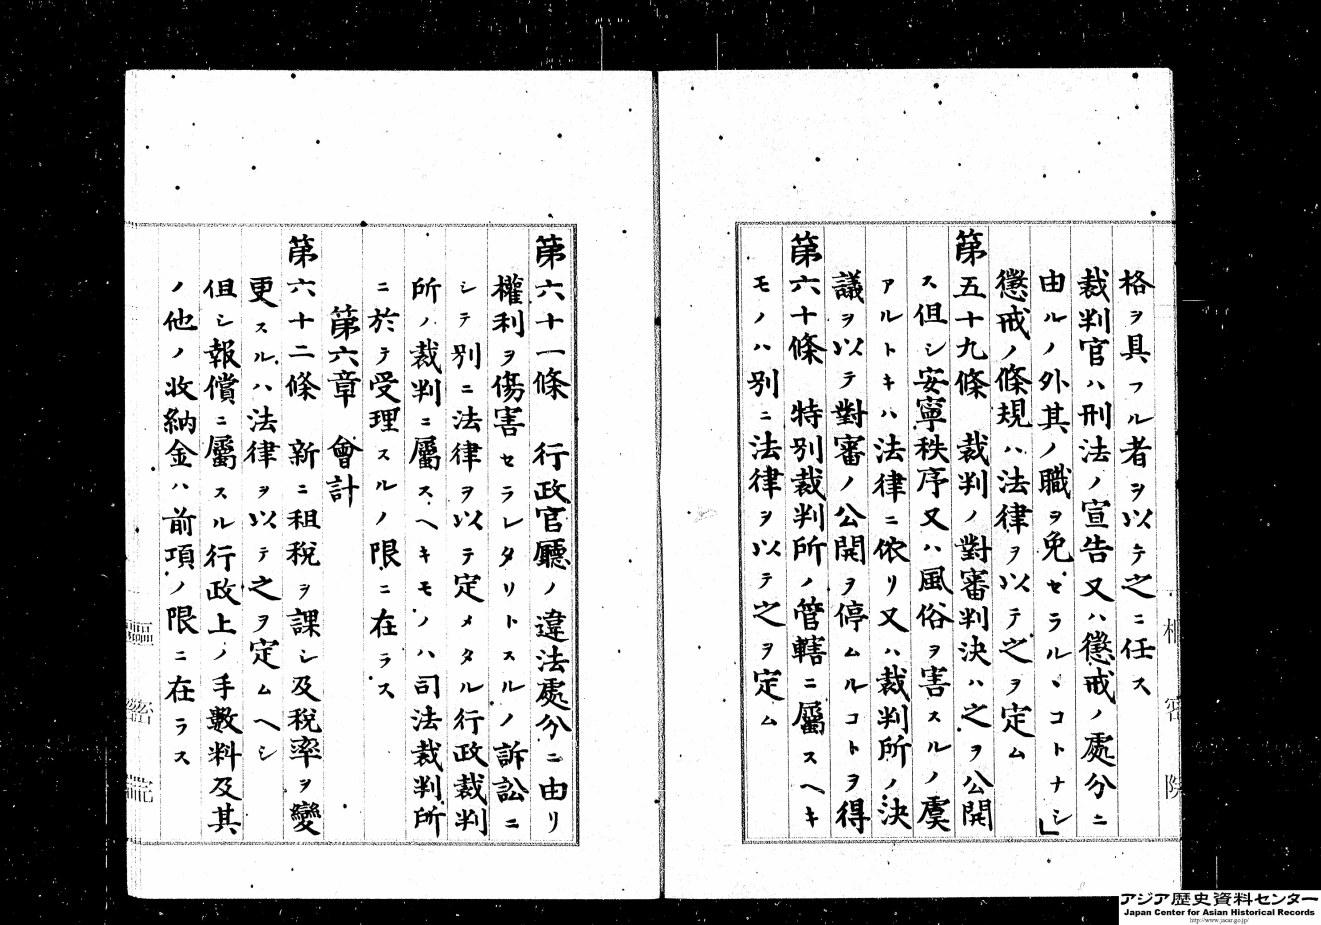 格ヲ具フル者ヲ以テ之ニ任ス
裁判官ハ刑法ノ宣告又ハ懲戒ノ處分ニ
由ルノ外其ノ職ヲ免セラルヽコトナシ」
懲戒ノ條規ハ法律ヲ以テ之ヲ定ム
第五十九條　裁判ノ對審判決ハ之ヲ公開
ス但シ安寧秩序又ハ風俗ヲ害スルノ虞
アルトキハ法律ニ依リ又ハ裁判所ノ決
議ヲ以テ對審ノ公開ヲ停ムルコトヲ得
第六十條　特別裁判所ノ管轄ニ屬スヘキ
モノハ別ニ法律ヲ以テ之ヲ定ム
第六十一條　行政官廳ノ違法處分ニ由リ
權利ヲ傷害セラレタリトスルノ訴訟ニ
シテ別ニ法律ヲ以テ定メタル行政裁判
所ノ裁判ニ屬スヘキモノハ司法裁判所
ニ於テ受理スルノ限ニ在ラス
第六章　會計
第六十二條　新ニ租稅ヲ課シ及稅率ヲ變
更スルハ法律ヲ以テ之ヲ定ムヘシ
但シ報償ニ屬スル行政上ノ手數料及其
ノ他ノ收納金ハ前項ノ限ニ在ラス
アジア歴史資料センター
Japan Center for Asian Historical Records
http://www.jacar.go.jp/